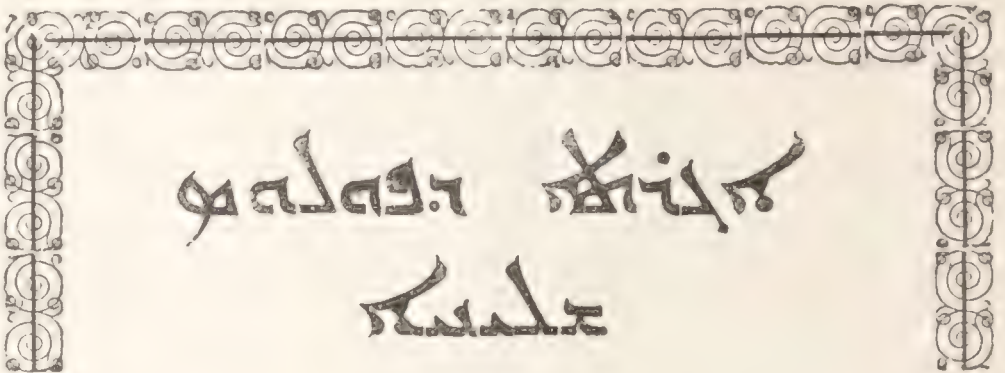 ܐܓܪܬܐ ܕܦܘܠܘܣ
ܫܠܝܚܐ